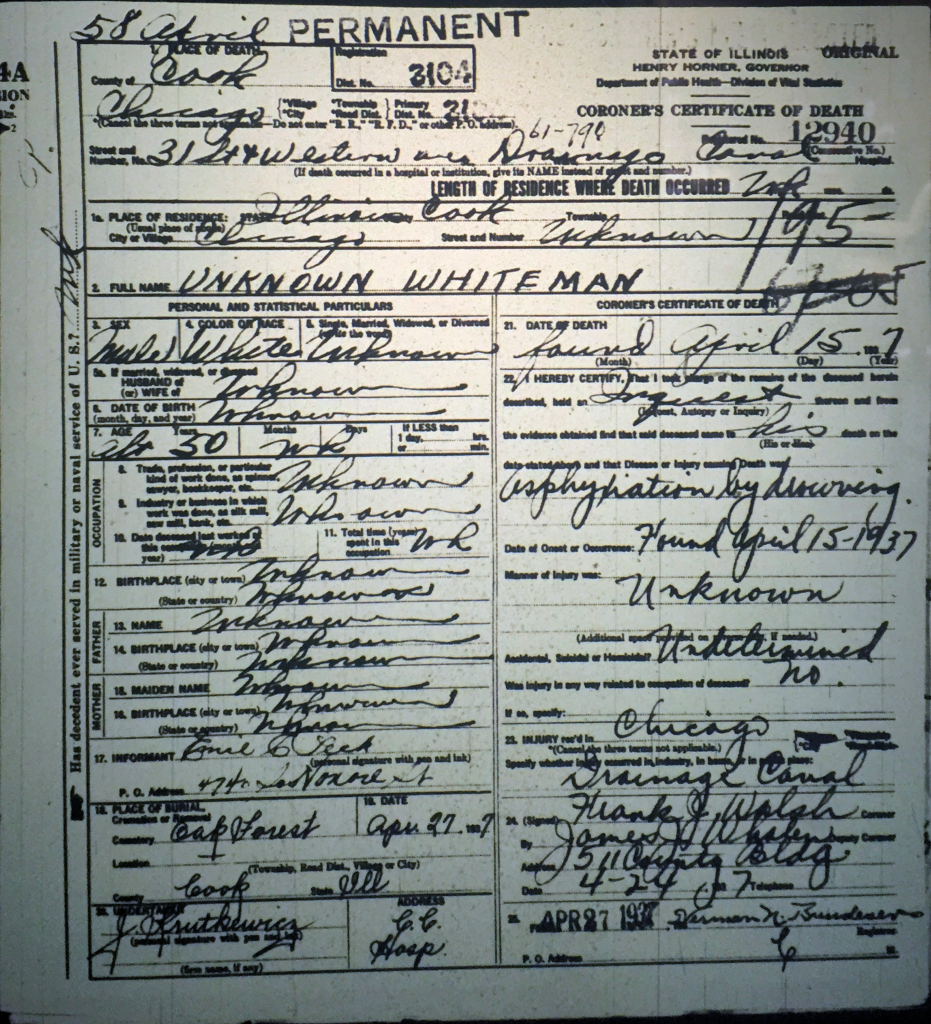 58 April PERMANENT
ORIGINAL
1. PLACE OF DEATH
County of Cook
Registration
Dist. No. 3104
STATE OF ILLINOIS
HENRY HORNER, GOVERNOR
Department of Public Health—Division of Vital Statistics
CORONER'S CERTIFICATE OF DEATH
Chicago
*Village *Township Primary
*City *Road Dist. Dist. No. 21
*(Cancel the three terms not applicable—Do not enter "R. R.," "R. F. D.," or other P. O. address).
61-790
Registered No. 12940
(Consecutive No.)
Street and
Number, No. 31 Western Ave Drainage Canal
Hospital.
(If death occurred in a hospital or institution, give its NAME instead of street and number.)
LENGTH OF RESIDENCE WHERE DEATH OCCURRED Unk
1a. PLACE OF RESIDENCE: STATE Illinois County Cook Township
(Usual place of abode)
City or Village Chicago Street and Number Unknown
195
2. FULL NAME UNKNOWN WHITE MAN
Has decedent ever served in military or naval service of U. S.? Unk
PERSONAL AND STATISTICAL PARTICULARS
3. SEX 4. COLOR OR RACE 5. Single, Married, Widowed, or Divorced
(write the word)
Male White Unknown
5a. If married, widowed, or divorced
HUSBAND of
(or) WIFE of Unknown
6. DATE OF BIRTH
(month, day, and year) Unknown
7. AGE Years Months Days If LESS than
1 day, hrs.
or min.
Abt 50 Unk
OCCUPATION
8. Trade, profession, or particular
kind of work done, as spinner,
sawyer, bookkeeper, etc. Unknown
9. Industry or business in which
work was done, as silk mill,
saw mill, bank, etc. Unknown
10. Date deceased last worked at
this occupation
year) Unk
11. Total time (years)
spent in this
occupation Unk
12. BIRTHPLACE (city or town) Unknown
(State or country) Unknown
FATHER
13. NAME Unknown
14. BIRTHPLACE (city or town) Unknown
(State or country) Unknown
MOTHER
15. MAIDEN NAME Unknown
16. BIRTHPLACE (city or town) Unknown
(State or country) Unknown
17. INFORMANT
(personal signature with pen and ink)
P. O. Address 474 So Honore St
18. PLACE OF BURIAL,
Cremation or Removal
Cemetery Oak Forest
19. DATE
Apr. 27, 1937
Location
(Township, Road Dist., Village or City)
County Cook State Ill
20. UNDERTAKER
J. Krutkewicz
(personal signature with pen and ink)
(firm name, if any)
ADDRESS
C.C.
Hosp.
CORONER'S CERTIFICATE OF DEATH
21. DATE OF DEATH
found April 15, 1937
(Month) (Day) (Year)
22. I HEREBY CERTIFY, That I took charge of the remains of the deceased herein
described, held an Inquest thereon and from
(Inquest, Autopsy or Inquiry)
the evidence obtained find that said deceased came to his death on the
(His or Her)
date stated above and that Disease or Injury causing Death was
asphyxiation by drowning.
Date of Onset or Occurrence: Found April 15-1937
Manner of injury was:
Unknown
Accidental, Suicidal or Homicidal? Undetermined
Was injury in any way related to occupation of deceased? no.
If so, specify:
23. INJURY rec'd in Chicago
*(Cancel the three terms not applicable.)
Specify whether injury occurred in industry, in home, or in public place:
Drainage Canal
24. (Signed) Frank J. Walsh Coroner
By James Whalen Deputy Coroner
Address 511 County Bldg
Date 4-24 1937 Telephone
25. APR 27 1937 Herman N. Bundesen
Registrar
P. O. Address